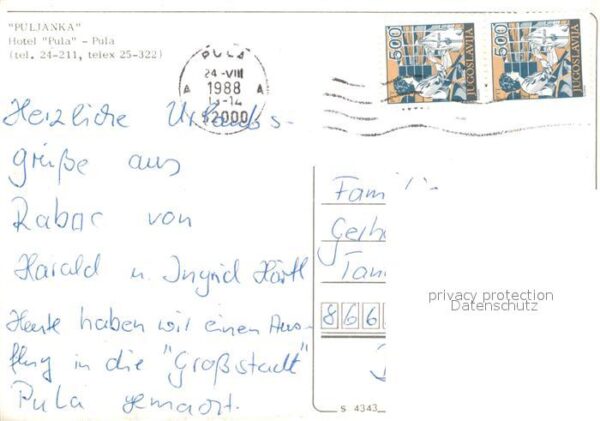 "PULJANKA"
Hotel "Pula" - Pula
(tel. 24-211, telex 25-322)
PULA
24-VIII
A 1988 A
13-14
52000
500
JUGOSLAVIJA
500
JUGOSLAVIJA
Herzliche Urlaubs-
grüße aus
Rabac von
Harald u. Ingrid Härtl
Heute haben wir einen Aus-
flug in die "Großstadt"
Pula gemacht.
Famili
Gerha
Tan
866
privacy protection
Datenschutz
S 4343